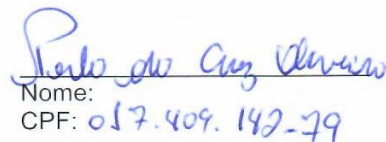 do Cruz Oliveira
Nome:
CPF: 017.409.142-79